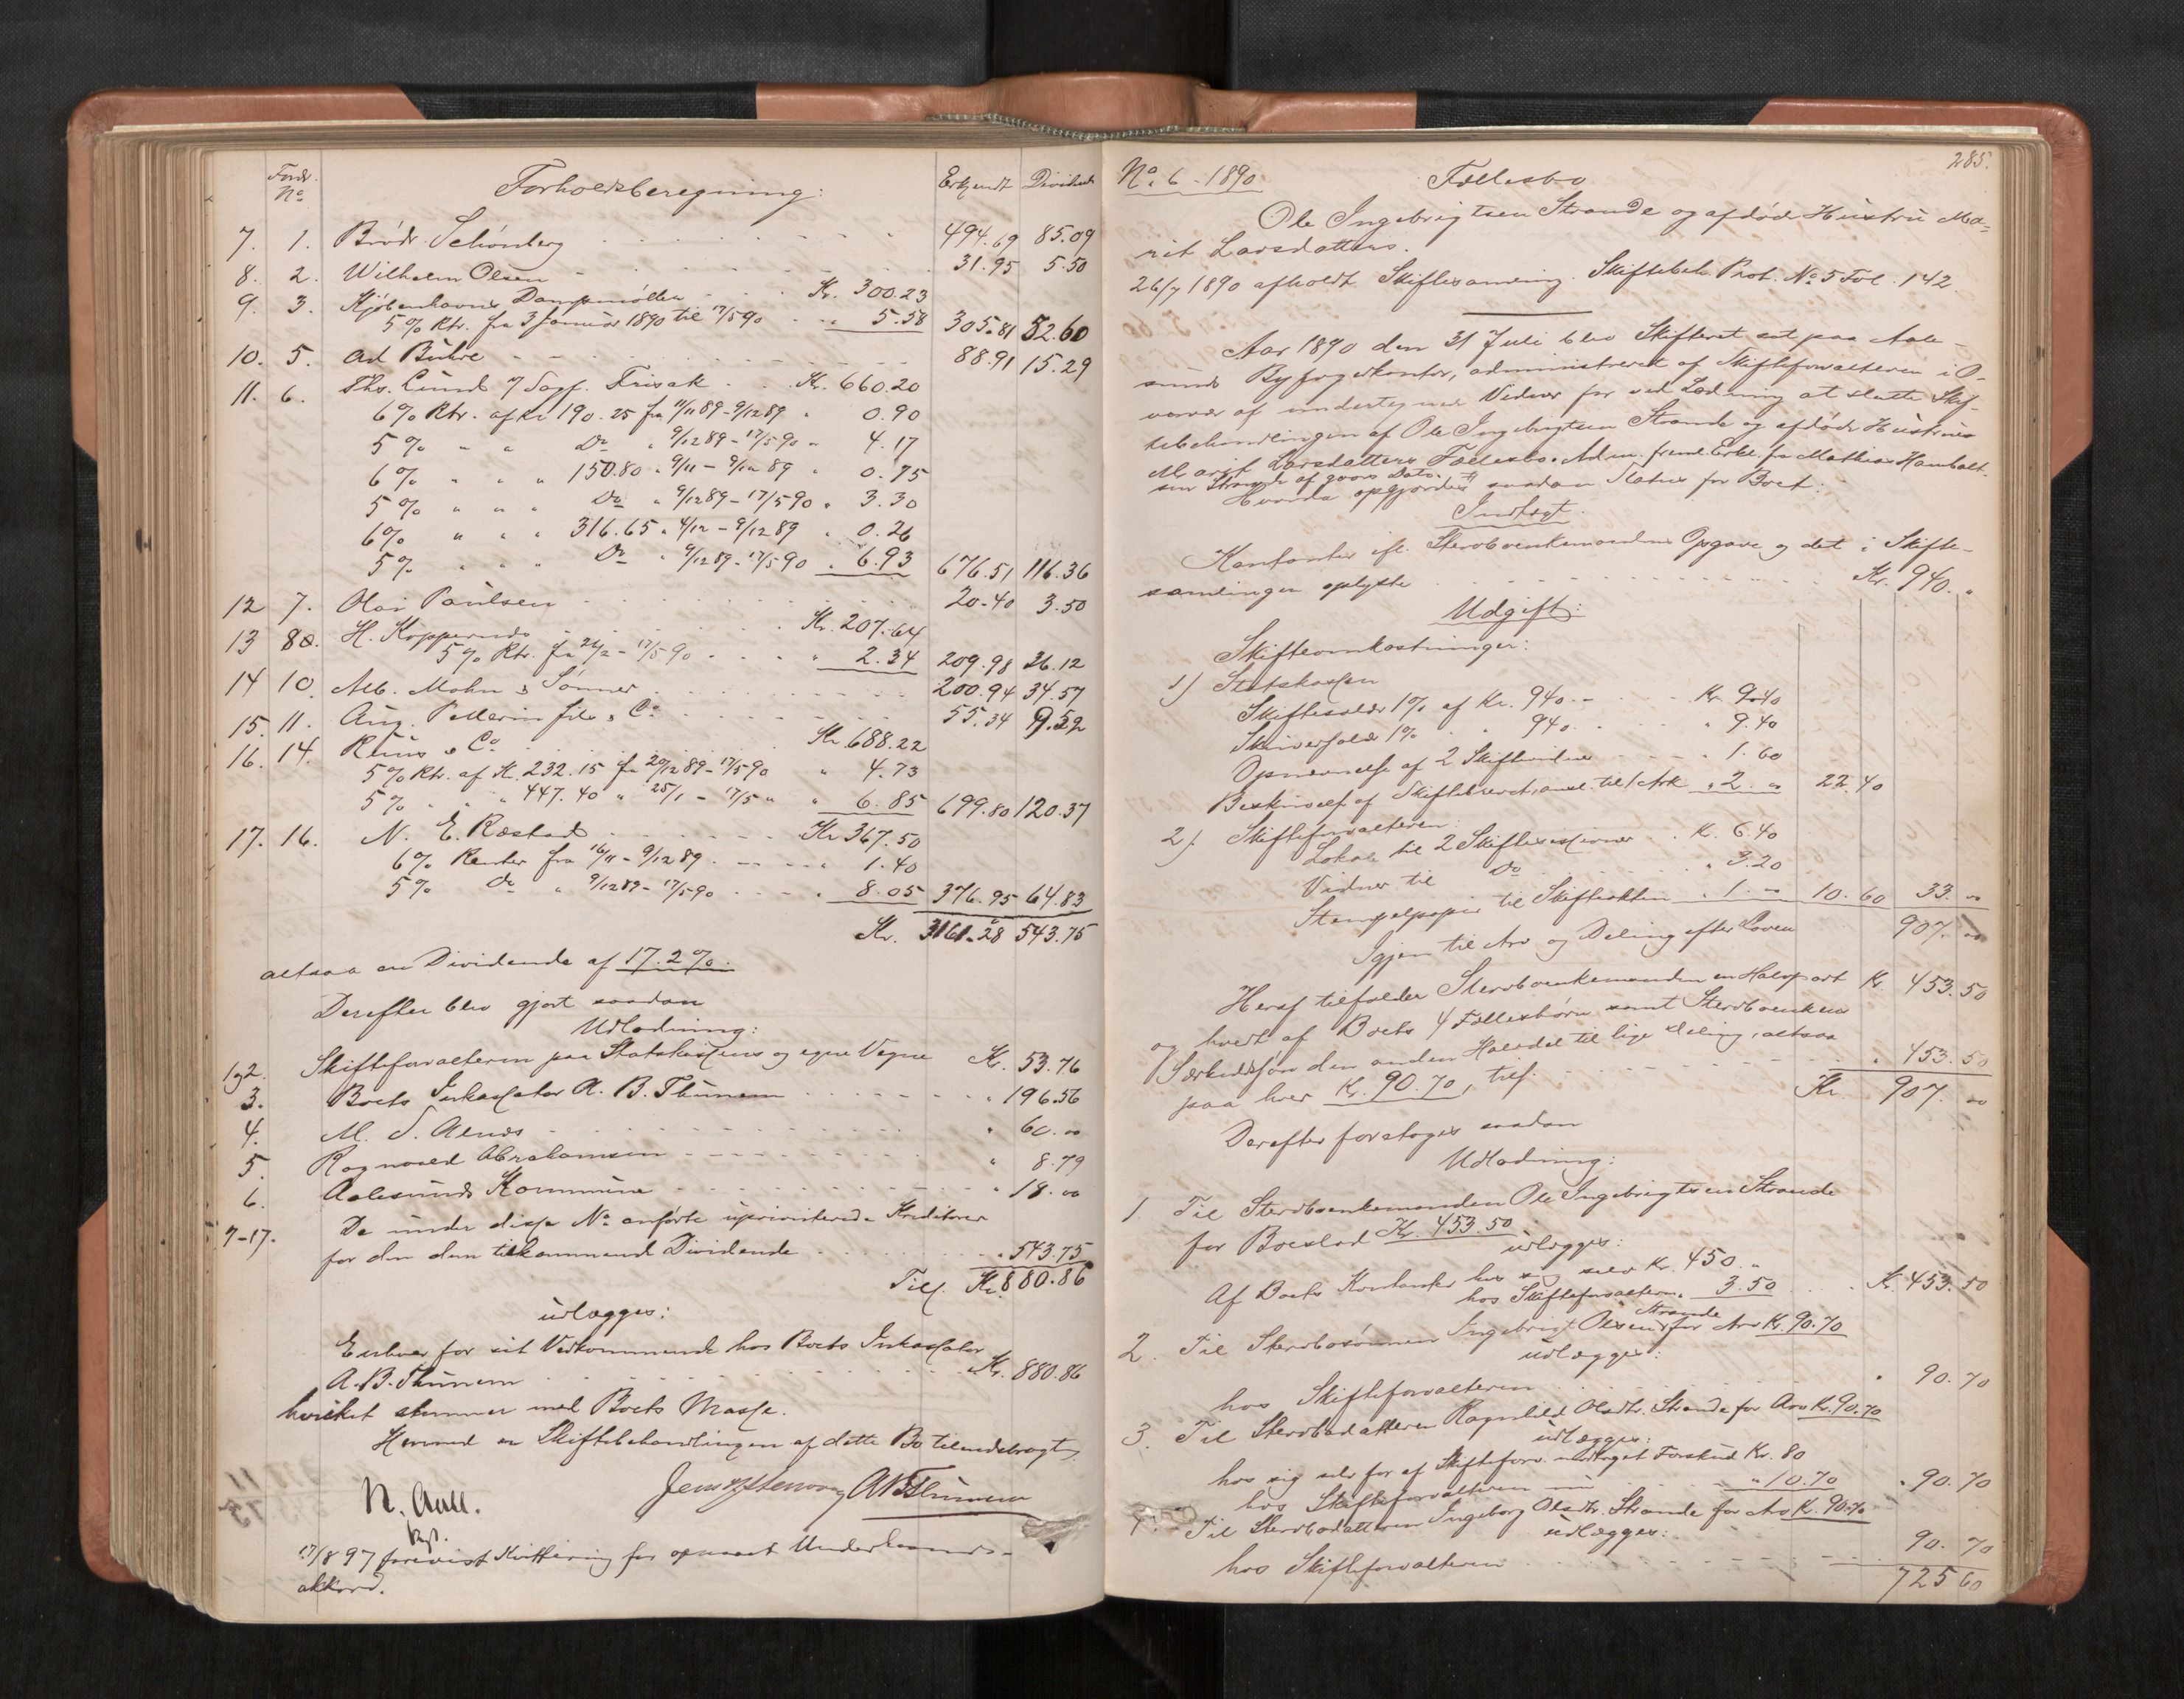 Fordr. No Forholdsberegning: Erkjendt Dividende
7. 1. Brødr. Schönberg 494.69 85.09
8. 2. Wilhelm Olsen 31.95 5.50
9. 3. Kjøbenhavns Dampmøller Kr. 300.23
5% Rtr. fra 3 Januar 1890 til 17/5 90 " 5.58 305.81 52.60
10. 5. Ad Buhre 88.91 15.29
11. 6. Ths. Lund & Sagf. Frisak Kr. 660.20
6% Rtr. af Kr 190.25 fra 11/11 89 - 9/12 89 " 0.90
5% " " Do " 9/12 89 - 17/5 90 " 4.17
6% " " " 150.80 " 9/11 - 9/12 89 " 0.75
5% " " " Do " 9/12 89 - 17/5 90 " 3.30
6% " " " 316.65 " 4/12 - 9/12 89 " 0.26
5% " " " Do " 9/12 89 - 17/5 90 " 6.93 676.51 116.36
12 7. Olai Paulsen 20.40 3.50
13 8a. H. Koppernæs Kr. 207.64
5% Rtr. fra 24/2 - 17/5 90 " 2.34 209.98 36.12
14 10. Alb. Mohn & Sønner 200.94 34.57
15. 11. Aug. Pellerin fils & Co 55.34 9.52
16. 14. Reins & Co Kr 688.22
5% Rtr. af Kr. 232.15 fra 20/12 89 - 17/5 90 " 4.73
5% " " " 447.40 " 25/1 - 17/5 " " 6.85 699.80 120.37
17. 16. N. E. Ræstad Kr 367.50
6% Renter fra 16/11 - 9/12 89 " 1.40
5% Do " 9/12 89 - 17/5 90 " 8.05 376.95 64.83
Kr. 3161.28 543.75
altsaa en Dividende af 17.2%.
Derefter blev gjort saadan
Udlodning:
1 og 2. Skifteforvalteren paa Statskassens og egne Vegne Kr. 53.76
3. Boets Inkassator A. B. Thunem " 196.56
4. M. S. Aenes " 60.00
5. Ragnvald Abrahamsen " 8.79
6. Aalesunds Kommune " 18.00
7-17. De under disse No anførte uprioriterede Kreditorer
for den dem tilkommende Dividende " 543.75
Tils. Kr. 880.86
udlægges:
Enhver for sit Vedkommende hos Boets Inkassator
A. B. Thunem Kr. 880.86
hvilket stemmer med Boets Masse.
Hermed er Skiftebehandlingen af dette Bo tilendebragt.
N. Aall. A B Thunem
kst.
17/8 97 forevist Kvittering for opnaaet Underhaands-
akkord.
285.
No. 6 - 1890. Fællesbo
Ole Ingebrigtsen Strande og afdøde Hustru Ma-
rit Larsdatters.
26/7 1890 afholdt Skiftesamling. Skiftebeh. Prot. No 5 Fol. 142.
Aar 1890 den 31 Juli blev Skifteret sat paa Aale-
sunds Byfogedkontor, administreret af Skifteforvalteren i O-
vervær af undertegnede Vidner for ved Lodning at slutte Skif-
tebehandlingen af Ole Ingebrigtsen Strande og afdøde Hustrus
Marit Larsdatters Fællesbo. Adm. freml. Erkl. fra Mathias Hambalt-
sen Strande af gaars Dato.
Hvorda opgjordes saadan Status for Boet:
Indtægt.
Kontanter efl. Sterboenkemandens Opgave og det i Skifte-
samlingen oplyste Kr. 940. "
Udgift:
Skifteomkostninger:
1) Statskassen
Skiftesalær 1% af Kr. 940.- Kr. 9.40
Skriversalær 1% " " 940. " 9.40
Opnævnelse af 2 Skiftevidner " 1.60
Beskrivelse af Skiftebrevet, ansl. til 1 Ark " 2. 00 22.40
2). Skifteforvalteren.
Lokale til 2 Skiftesessioner K. 6.40
Vidner til Do " 3.20
Stempelpapir til Skifteakten " 1.00 10.60 33.00
Igjen til Arv og Deling efter Loven 907.00
Heraf tilfalder Sterboenkemanden en Halvpart Kr. 453.50
og hvert af Boets 4 Fællesbørn samt Sterboenkens
Særkuldsøn den anden Halvdel til lige Deling, altsaa
paa hver Kr. 90.70, tils. " 453.50
Kr 907.00
Derefter foretoges saadan
Udlodning:
1. Til Sterboenkemanden Ole Ingebrigtsen Strande
for Boeslod Kr. 453.50
udlægges:
Af Boets Kontanter hos sig selv Kr. 450. "
hos Skifteforvalteren " 3.50 Kr. 453.50
2. Til Sterbosønnen Ingebrigt Olsen Strande for Arv Kr. 90.70
udlægges:
hos Skifteforvalteren " 90.70
3. Til Sterbodatteren Ragnhild Olsdtr. Strande for Arv Kr. 90.70
udlægges:
hos sig selv for af Skifteforv. modtaget Forskud Kr. 80
hos Skifteforvalteren nu " 10.70 " 90.70
4. Til Sterbodatteren Ingeborg Olsdtr. Strande for Arv Kr. 90.70
udlægges:
hos Skifteforvalteren 90.70
725 60